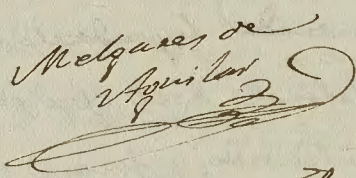 Melgares de
Aguilar